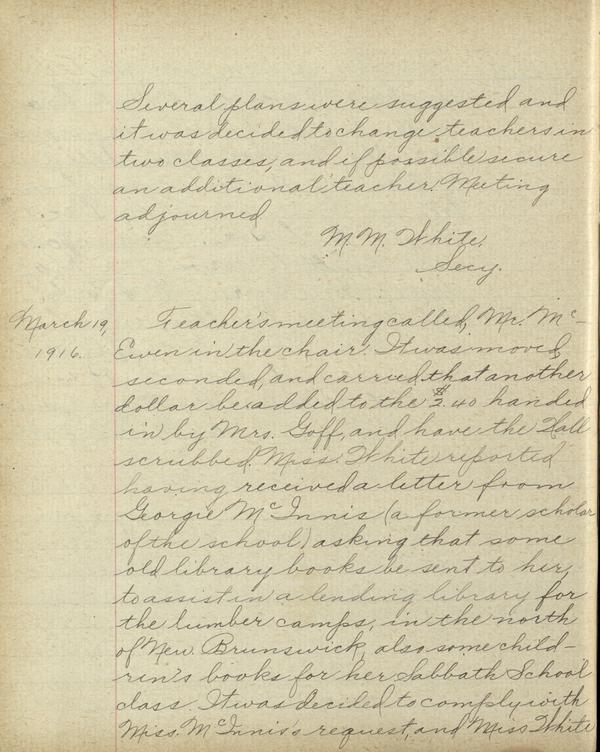 Several plans were suggested and
it was decided to change teachers in
two classes, and if possible secure
an additional teacher. Meeting
adjourned
M. M. White.
Secy.
March 19,
1916.
Teacher's meeting called, Mr. Mc-
Ewen in the chair. It was moved,
seconded, and carried that another
dollar be added to the $2.40 handed
in by Mrs. Goff, and have the Hall
scrubbed. Miss White reported
having received a letter from
Georgie McInnis (a former scholar
of the school) asking that some
old library books be sent to her,
to assist in a lending library for
the lumber camps, in the north
of New Brunswick, also some child-
rin's books for her Sabbath School
class. It was decided to comply with
Miss. McInnis's request, and Miss White